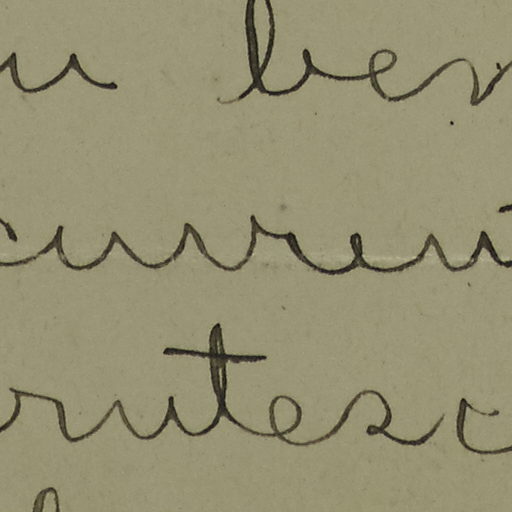 u ber
curren
rutesc